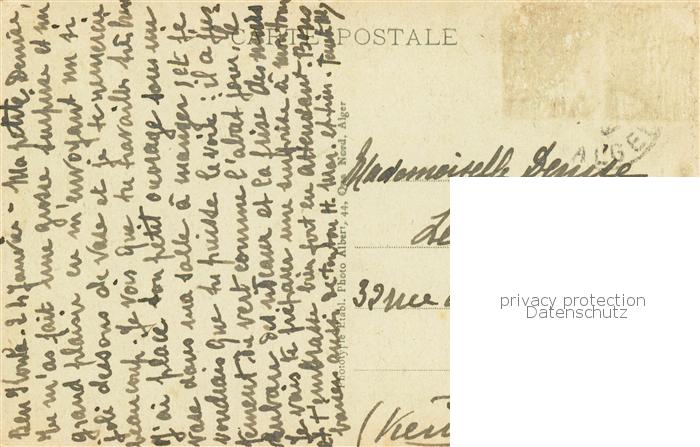 CARTE POSTALE
Ben Aknoun. 24 Janvier - Ma petite Denise,
tu m'as fait une grosse surprise et un
grand plaisir en m'envoyant un si
joli dessous de vase et je te remercie
beaucoup. Je vois que tu travailles très bien
J'ai placé ton petit ouvrage sous un
vase dans ma salle à manger, et je
voudrais que tu puisses le voir : il a
vert comme l'abat jour, le
des rideaux et la frise des murs
Je vais te préparer une surprise à mon tour
Je t'embrasse bien fort en attendant. Bons
baisers aussi de tonton H.
Phototypie Etabl. Photo Albert, 44, Nord, Alger
ALGER
Mademoiselle Denise
Le
32 rue
privacy protection
Datenschutz